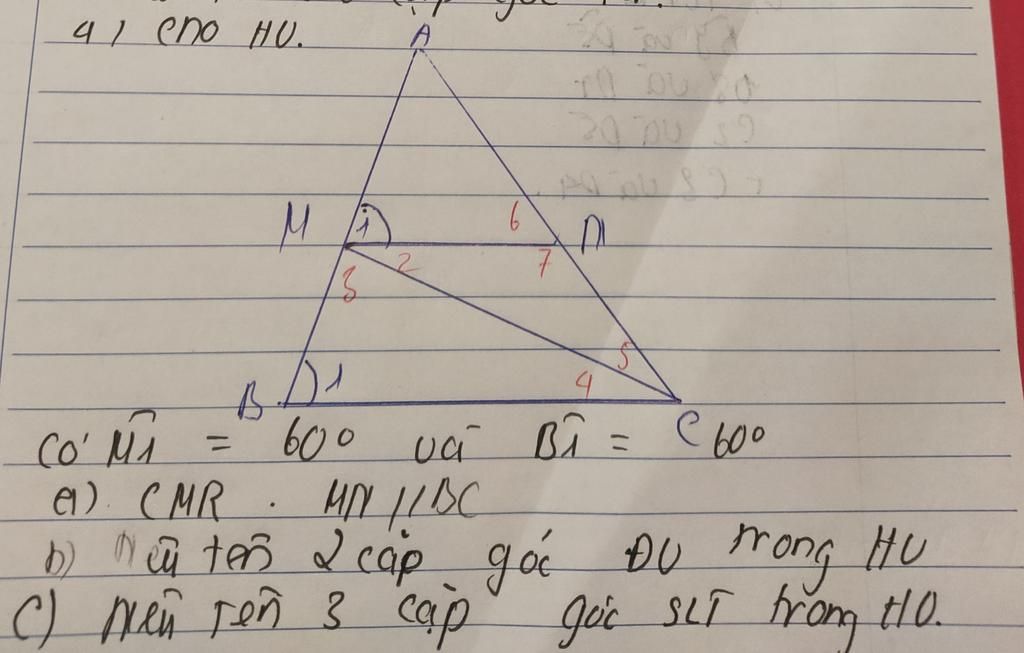 4) cho HV.
A
M 1 6 N
2 7
3
5
B 1 4 C
Có M̂1 = 60° và B̂1 = 60°
a) CMR . MN // BC
b) Nêu tên 2 cặp góc ĐV trong HV
c) Nêu Tên 3 cặp góc SLT trong HV.